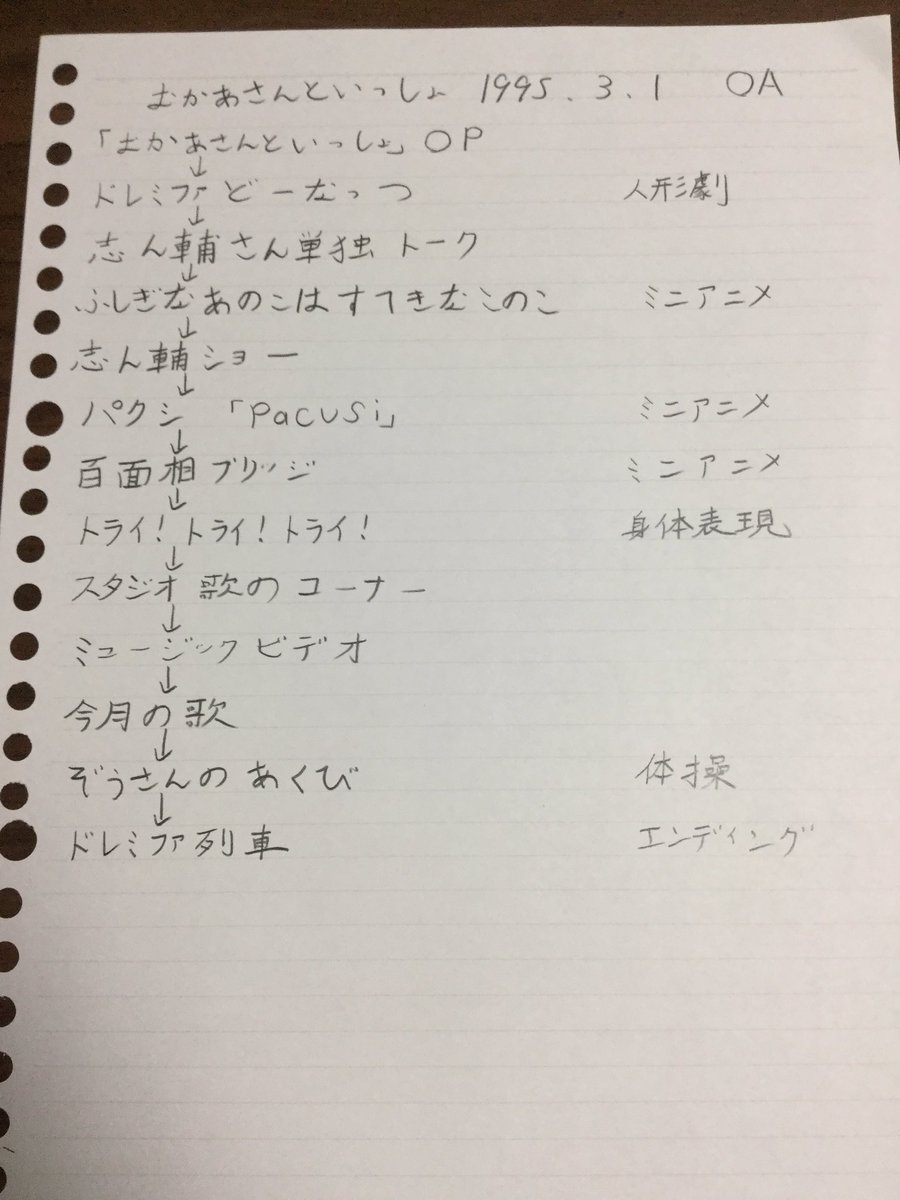 おかあさんといっしょ 1995.3.1 OA
「おかあさんといっしょ」OP
↓
ドレミファどーなっつ 人形劇
↓
志ん輔さん単独トーク
↓
ふしぎなあのこはすてきなこのこ ミニアニメ
↓
志ん輔ショー
↓
パクシ 「Pacusi」 ミニアニメ
↓
百面相ブリッジ ミニアニメ
↓
トライ!トライ!トライ! 身体表現
↓
スタジオ歌のコーナー
↓
ミュージックビデオ
↓
今月の歌
↓
ぞうさんのあくび 体操
↓
ドレミファ列車 エンディング